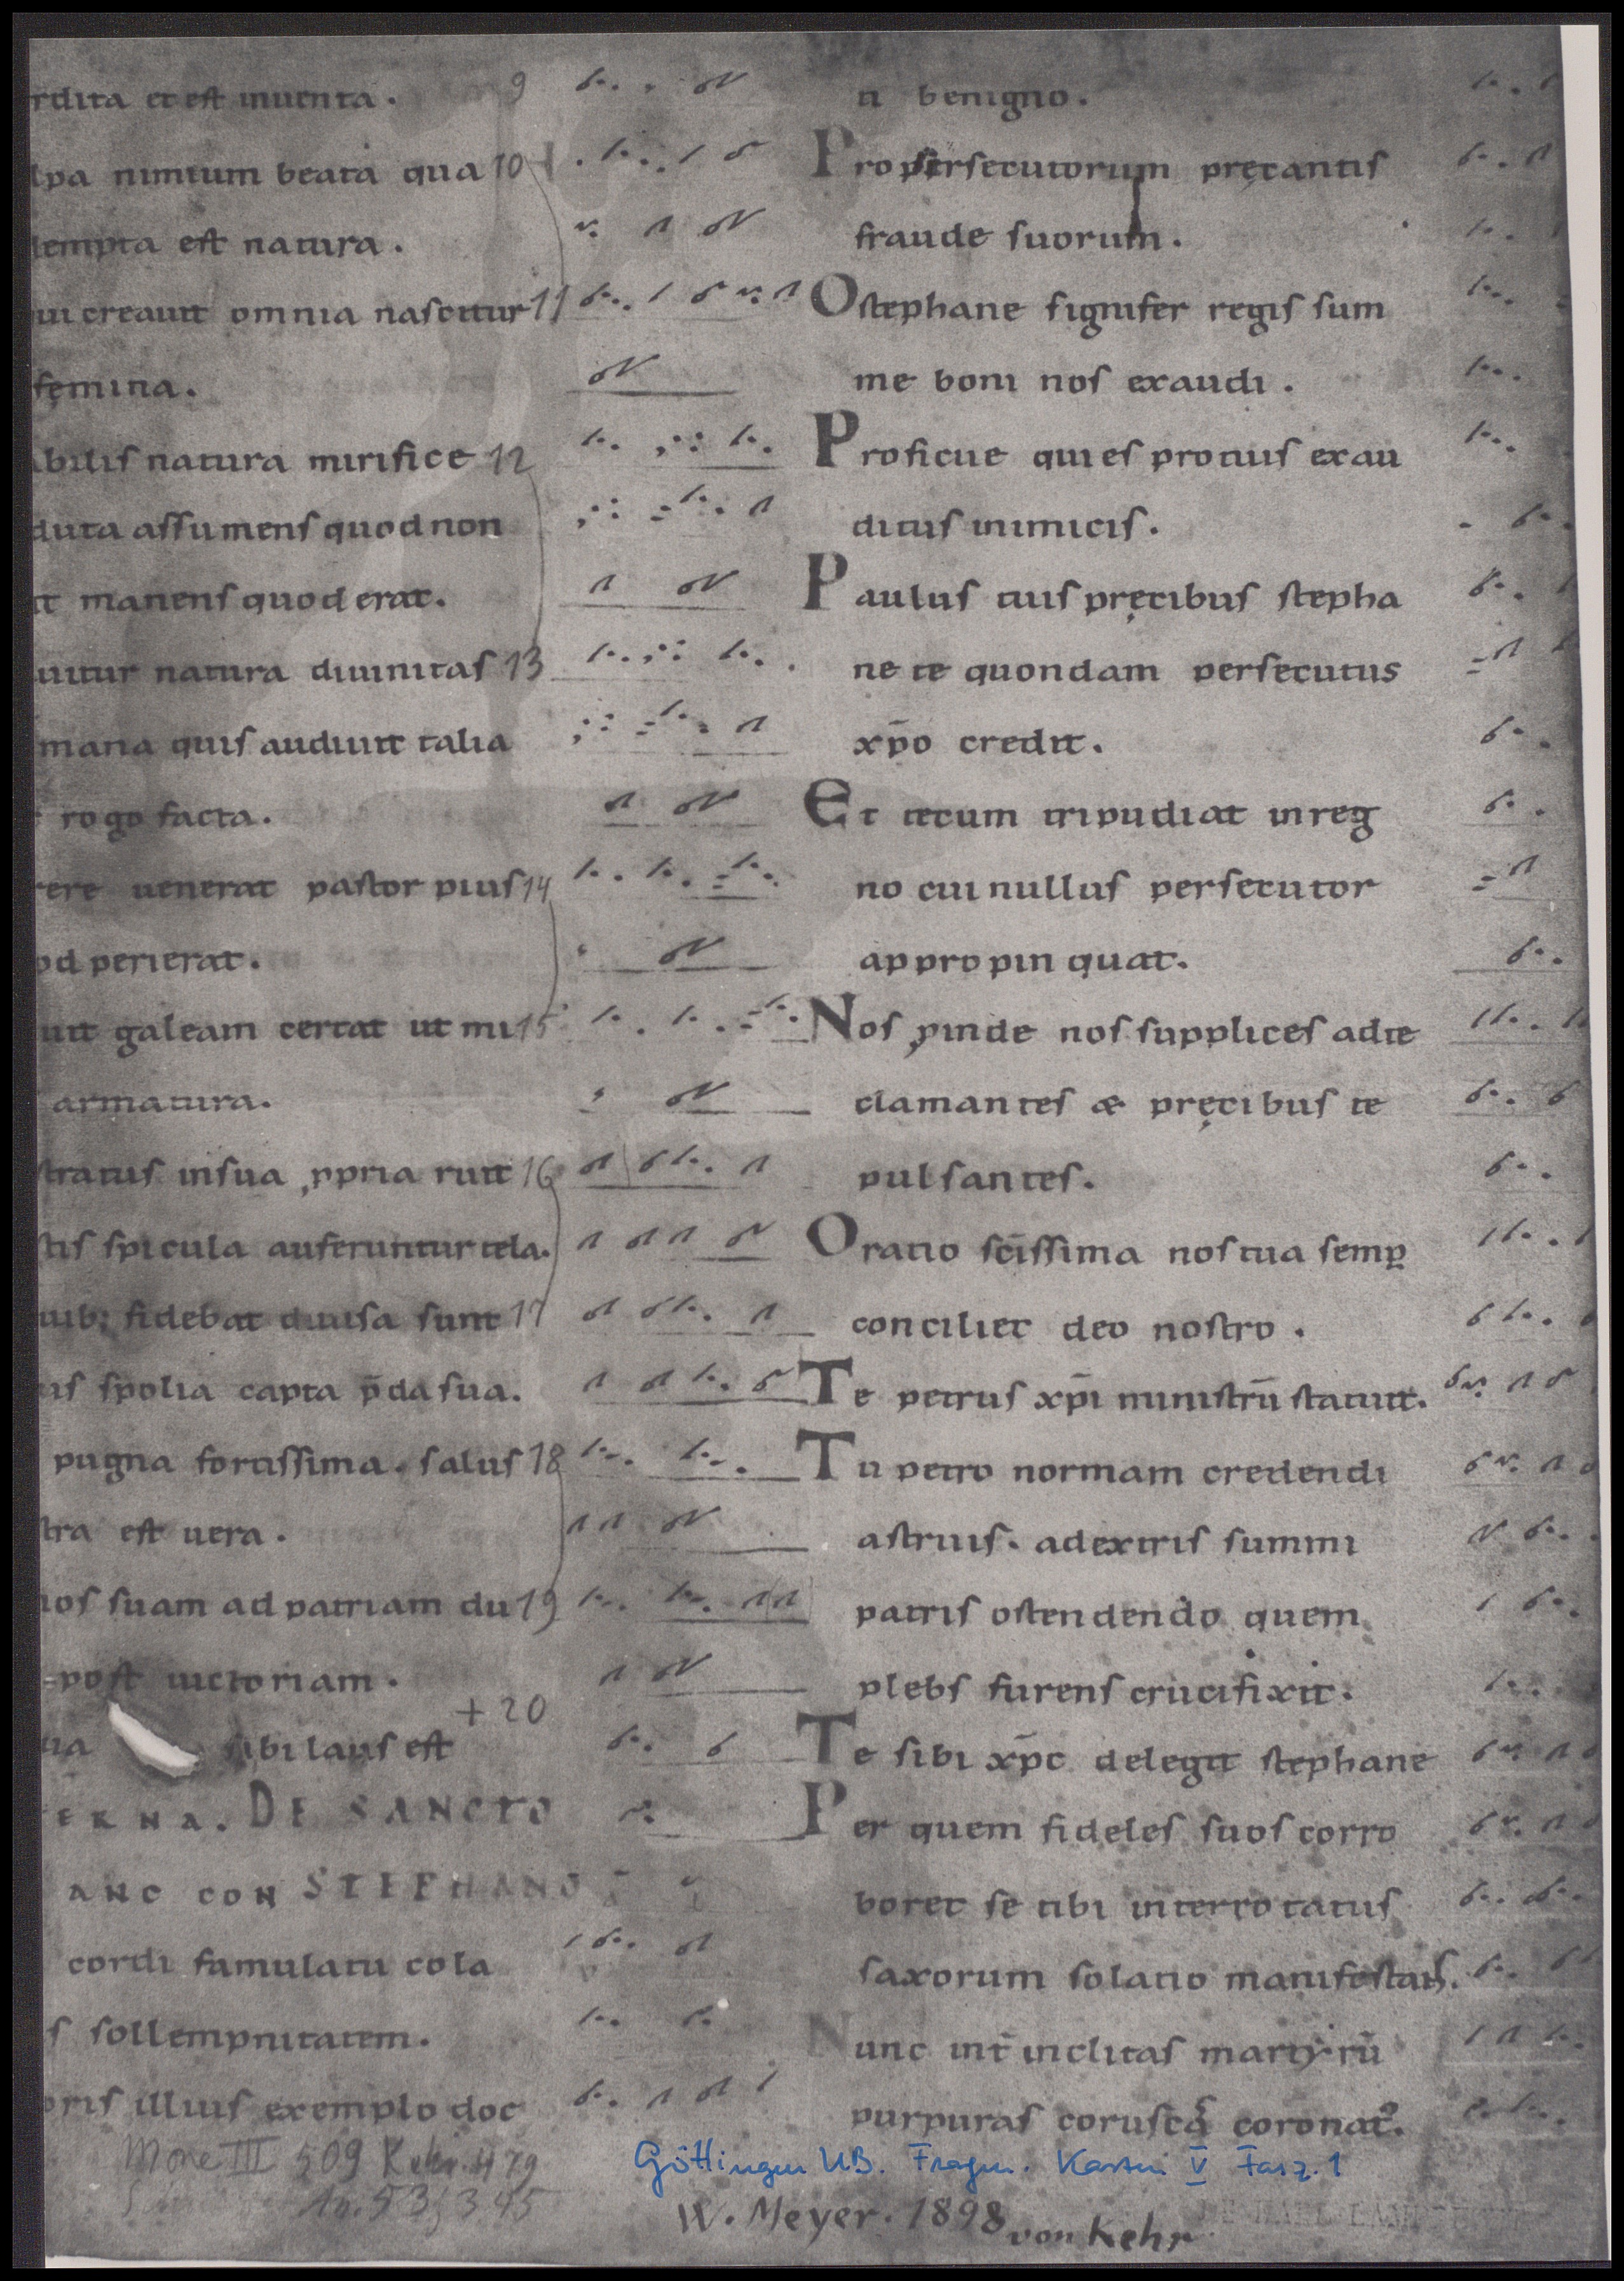 rdita et est inuenta. 9
lpa nimium beata qua 10
dempta est natura.
ui creauit omnia nascitur 11
femina.
abilis natura mirifice 12
duta assumens quod non
it manens quod erat.
uitur natura diuinitas 13
mana quis audiuit talia
rogo facta.
rere uenerat pastor pius 14
od perierat.
uit galeam certat ut mi 15
armatura.
stratus insua ꝓpria ruit 16
stis spicula auferuntur tela.
uib; fidebat diuisa sunt 17
is spolia capta p̄da sua.
pugna fortissima. salus 18
tra est uera.
nos suam ad patriam du 19
post uictoriam.
+20
ua sibi laus est
ERNA. DE SANCTO
ANC CON STEPHANO
cordi famulatu cola
s sollempnitatem.
oris illius exemplo doc
Mone III 509 Kehr. 479
An. 53, 345
n benigno.
Pro persecutorum pręcantis
fraude suorum.
O stephane signifer regis sum
me boni nos exaudi.
Proficue qui es protius exau
ditus inimicis.
Paulus tuis pręcibus stepha
ne te quondam persecutus
xp̄o credit.
Et tecum tripudiat in reg
no cui nullus persecutor
appropinquat.
Nos ꝓinde nos supplices ad te
clamantes æ pręcibus te
pulsantes.
Oratio sc̄issima nos tua semꝑ
conciliet deo nostro.
Te petrus xp̄i ministrū statuit.
Tu petro normam credendi
astruis. ad extris summi
patris ostendendo quem
plebs furens crucifixit.
Te sibi xp̄c delegit stephane
Per quem fideles suos corro
boret se tibi inter rotatus
saxorum solatio manifestans.
Nunc int̄ inclitas martyrū
purpuras coruscas coronat'.
Göttingen UB. Fragm. Kasten V Fasz. 1
W. Meyer. 1898 von Kehr